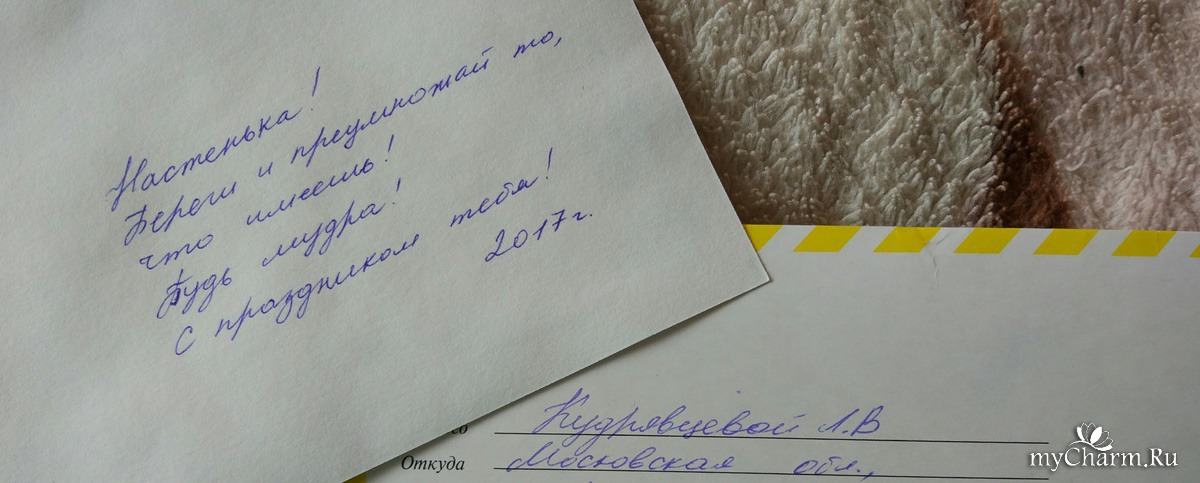 Настенька!
Береги и преумножай то,
что имеешь!
Будь мудра!
С праздником тебя!
2017 г.
Кудрявцевой Л.В
Откуда Московская обл.,
myCharm.Ru